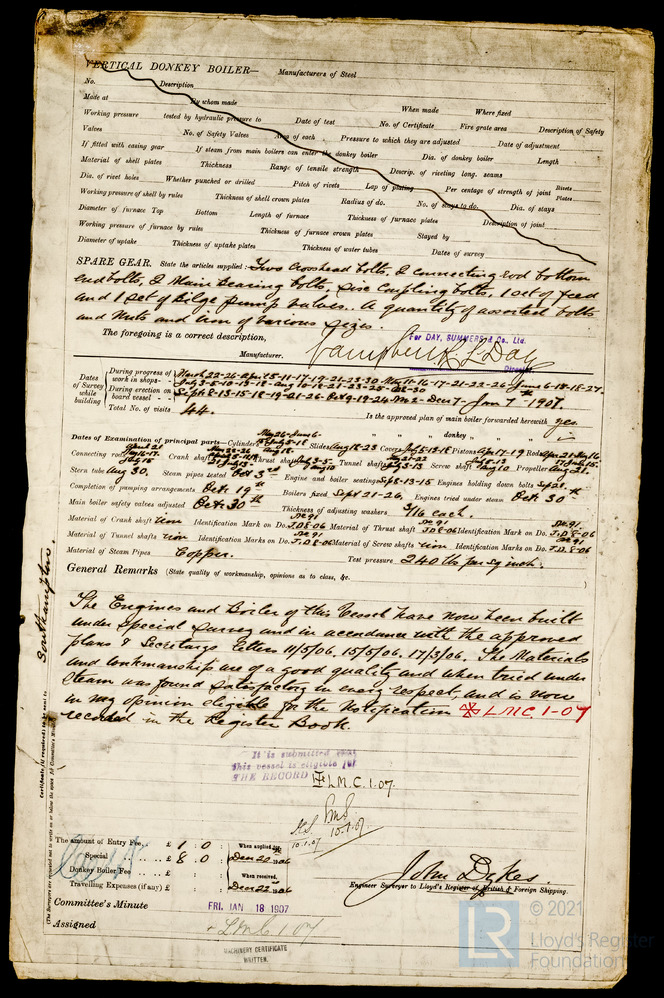 VERTICAL DONKEY BOILER— Manufacturers of Steel
No. Description
Made at By whom made When made Where fixed
Working pressure tested by hydraulic pressure to Date of test No. of Certificate Fire grate area Description of Safety
Valves No. of Safety Valves Area of each Pressure to which they are adjusted Date of adjustment
If fitted with easing gear If steam from main boilers can enter the donkey boiler Dia. of donkey boiler Length
Material of shell plates Thickness Range of tensile strength Descrip. of riveting long. seams
Dia. of rivet holes Whether punched or drilled Pitch of rivets Lap of plating Per centage of strength of joint Rivets Plates
Working pressure of shell by rules Thickness of shell crown plates Radius of do. No. of stays to do. Dia. of stays
Diameter of furnace Top Bottom Length of furnace Thickness of furnace plates Description of joint
Working pressure of furnace by rules Thickness of furnace crown plates Stayed by
Diameter of uptake Thickness of uptake plates Thickness of water tubes Dates of survey
SPARE GEAR. State the articles supplied:— Two Crosshead bolts, 2 connecting rod bottom
end bolts, 2 Main Bearing bolts, six Coupling bolts, 1 set of feed
and 1 set of bilge pump valves. A quantity of assorted bolts
and Nuts and iron of various sizes.
The foregoing is a correct description,
For DAY, SUMMERS & Co. Ltd.
Manufacturer. Day
Director
Dates of Survey while building
During progress of work in shops - - March 22-26- April 5-11-17-19-21-23-30 May 11-16-17-21-22-26
During erection on board vessel - - - Sept 8-13-15-18-19-21-26 Oct 9-19-24 Dec 7 - Jan 7th 1907.
Total No. of visits 44. Is the approved plan of main boiler forwarded herewith yes.
" " " donkey " " "
Dates of Examination of principal parts—Cylinders Slides Aug 18-23 Covers July 5-13-18 Pistons Apr 17-19 Rods
Connecting rods Crank shaft Thrust shaft Tunnel shafts Screw shaft Propeller Aug 21.
Stern tube Aug 30. Steam pipes tested Oct 3rd Engine and boiler seatings Sep 8-13-15 Engines holding down bolts Sep 21.
Completion of pumping arrangements Oct 19th Boilers fixed Sept 21-26, Engines tried under steam Oct 30th
Main boiler safety valves adjusted Oct 30th Thickness of adjusting washers 7/16 each.
Material of Crank shaft iron Identification Mark on Do. No 91 J.D 8-06 Material of Thrust shaft No 91 J.D 8-06 Identification Mark on Do. No 91. J.D 8-06
Material of Tunnel shafts iron Identification Marks on Do. No 91 J.D. 8-06 Material of Screw shafts iron Identification Marks on Do. No 91 J.D. 8-06
Material of Steam Pipes Copper. Test pressure 240 lbs per sq inch.
General Remarks (State quality of workmanship, opinions as to class, &c.
The Engines and Boiler of this Vessel have now been built
under Special Survey and in accordance with the approved
plans & Secretarys letters 11/5/06, 15/5/06. 17/3/06. The Materials
and workmanship are of a good quality and when tried under
steam was found satisfactory in every respect, and is now
in my opinion eligible for the Notification ✠ LMC 1-07
recorded in the Register Book.
It is submitted that
this vessel is eligible for
THE RECORD ✠ L.M.C. 1.07.
10.1.07
10.1.07
The amount of Entry Fee.. £ 1 : 0 When applied for,
Special .. .. £ 8 : 0 Dec 20 1906
Donkey Boiler Fee .. .. £ When received,
Travelling Expenses (if any) £ Dec 22 1906
John Dykes.
Engineer Surveyor to Lloyd's Register of British & Foreign Shipping.
Committee's Minute FRI. JAN 18 1907
Assigned + LMC 1 07
MACHINERY CERTIFICATE
WRITTEN.
Southampton.
Certificate (if required) to be sent to
(The Surveyors are requested not to write on or below the space for Committee's Minute.)
© 2021
LR
Lloyd's Register
Foundation